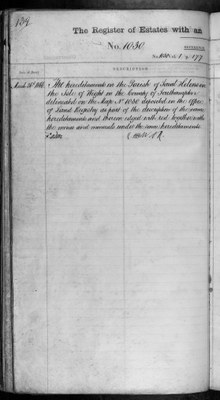 134
The Register of Estates with an
No. 1030
DESCRIPTION
All hereditaments in the Parish of Saint Helens in
the Isle of Wight in the County of Southampton
delineated on the Map No. 1030 deposited in the Office
of Land Registry as part of the description of the same
hereditaments and thereon edged with red together with
the mines and minerals under the same hereditaments